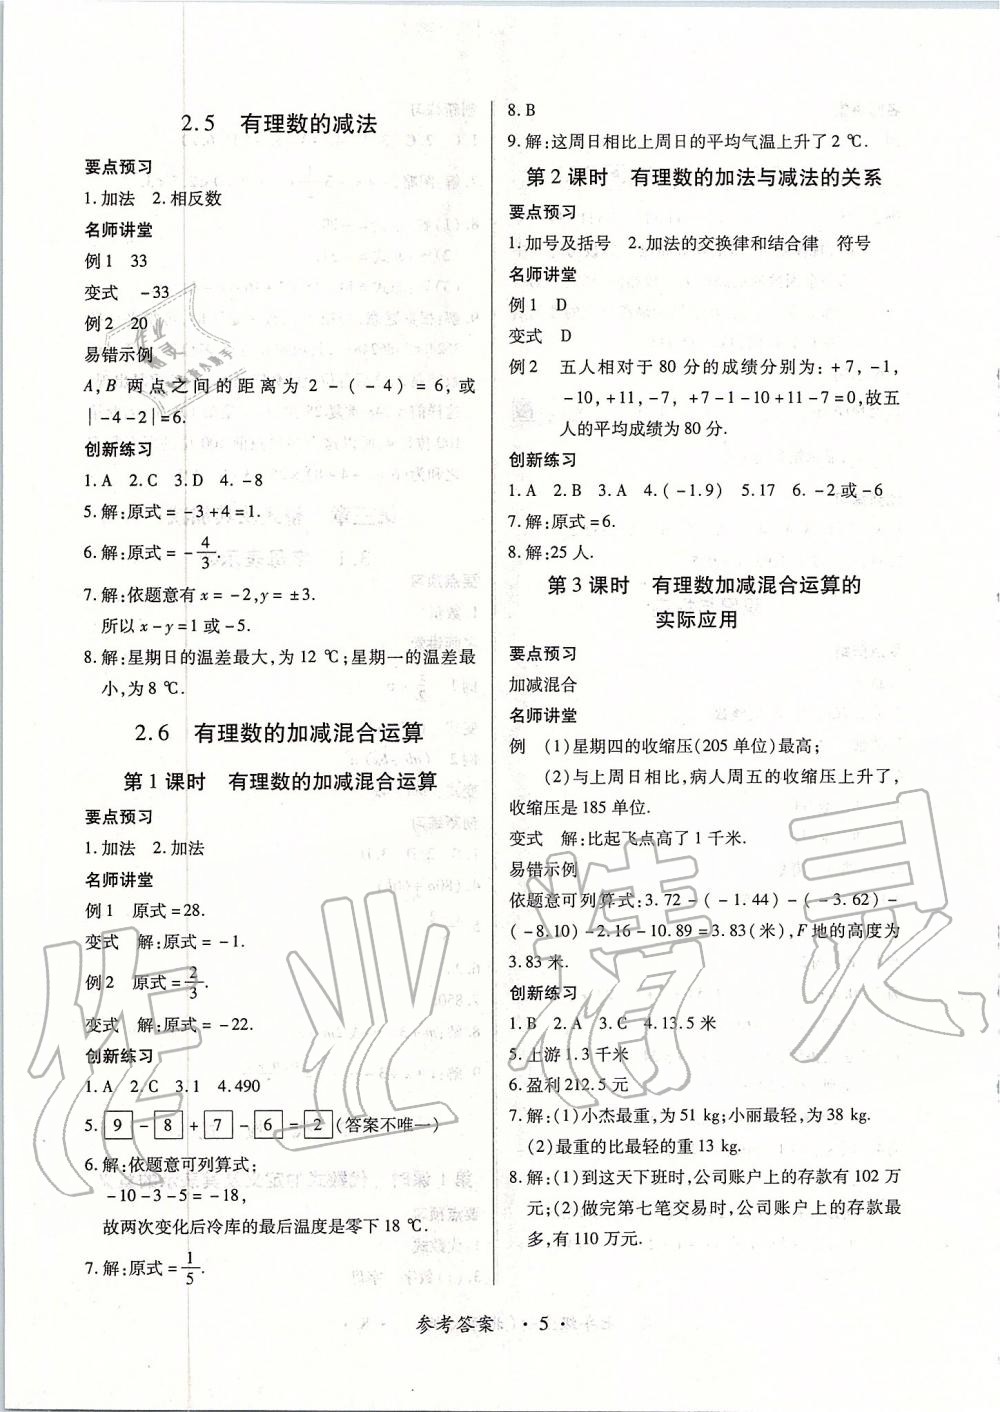 2.5 有理数的减法
要点预习
1.加法 2.相反数
名师讲堂
例1 33
变式 -33
例2 20
易错示例
A,B 两点之间的距离为 2-(-4)=6,或
|-4-2|=6.
创新练习
1.A 2.C 3.D 4.-8
5.解:原式=-3+4=1.
6.解:原式=-4/3.
7.解:依题意有x=-2,y=±3.
所以x-y=1或-5.
8.解:星期日的温差最大,为12 ℃;星期一的温差最
小,为8 ℃.
2.6 有理数的加减混合运算
第1课时 有理数的加减混合运算
要点预习
1.加法 2.加法
名师讲堂
例1 原式=28.
变式 解:原式=-1.
例2 原式=2/3.
变式 解:原式=-22.
创新练习
1.A 2.C 3.1 4.490
5.9-8+7-6=2(答案不唯一)
6.解:依题意可列算式:
-10-3-5=-18,
故两次变化后冷库的最后温度是零下18 ℃.
7.解:原式=1/5.
8.B
9.解:这周日相比上周日的平均气温上升了2 ℃.
第2课时 有理数的加法与减法的关系
要点预习
1.加号及括号 2.加法的交换律和结合律 符号
名师讲堂
例1 D
变式 D
例2 五人相对于80分的成绩分别为:+7,-1,
-10,+11,-7, +7-1-10+11-7=0,故五
人的平均成绩为80分.
创新练习
1.A 2.B 3.A 4.(-1.9) 5.17 6.-2或-6
7.解:原式=6.
8.解:25人.
第3课时 有理数加减混合运算的
实际应用
要点预习
加减混合
名师讲堂
例 (1)星期四的收缩压(205单位)最高;
(2)与上周日相比,病人周五的收缩压上升了,
收缩压是185单位.
变式 解:比起飞点高了1千米.
易错示例
依题意可列算式:3.72-(-1.44)-(-3.62)-
(-8.10)-2.16-10.89=3.83(米),F地的高度为
3.83米.
创新练习
1.B 2.A 3.C 4.13.5米
5.上游1.3千米
6.盈利212.5元
7.解:(1)小杰最重,为51 kg;小丽最轻,为38 kg.
(2)最重的比最轻的重13 kg.
8.解:(1)到这天下班时,公司账户上的存款有102万
元;(2)做完第七笔交易时,公司账户上的存款最
多,有110万元.
参考答案 · 5 ·
作业精灵